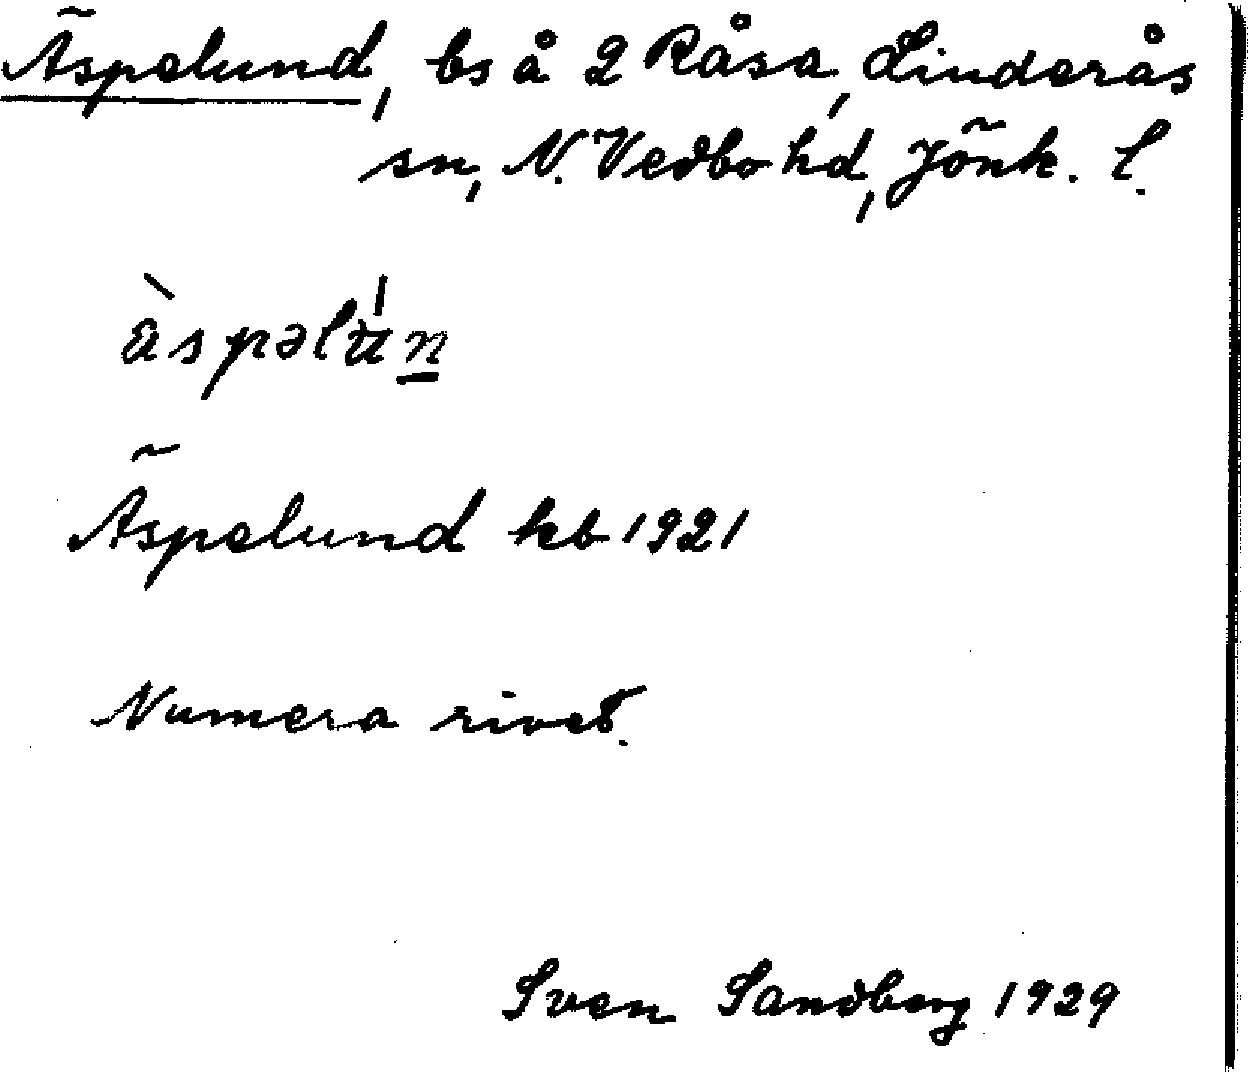 Äspelund, bs å 2 Råsa, Linderås
sn, N. Vedbo hd, Jönk. l.
Äspelund kb 1921
Numera rivet.
Sven Sandberg 1929